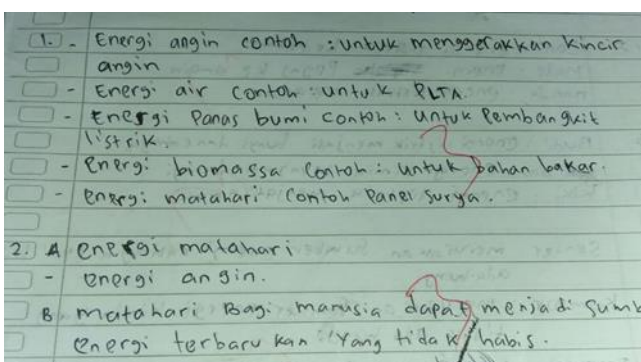 1. - Energi angin contoh : untuk menggerakkan kincir
angin
- Energi air contoh : untuk PLTA.
- Energi Panas bumi contoh : untuk Pembangkit
listrik.
- Energi biomassa contoh : untuk bahan bakar.
- energi matahari contoh Panel surya.
2. A energi matahari
- energi angin.
B matahari Bagi manusia dapat menjadi sumb
energi terbarukan yang tidak habis.